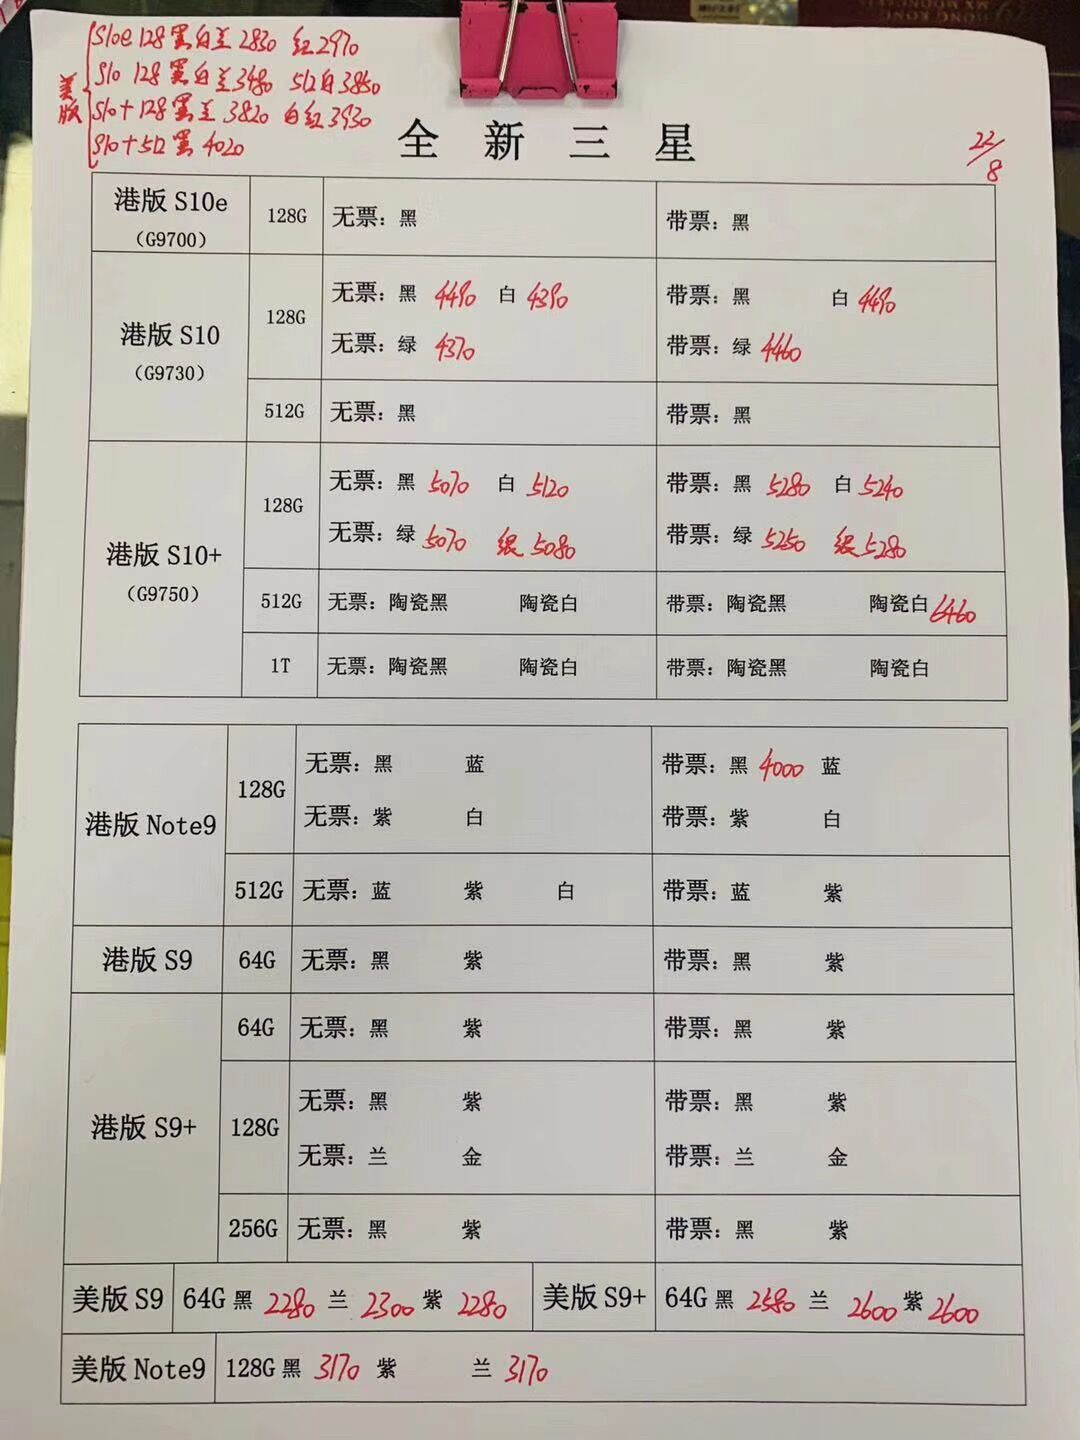 HONG KONG
美版
S10e 128 黑白兰 2830 红 2970
S10 128 黑白兰 3480 512白 3850
S10+ 128 黑兰 3820 白红 3930
S10+ 512 黑 4020
全新三星
22/8
港版 S10e
(G9700)
128G
无票: 黑
带票: 黑
港版 S10
(G9730)
128G
无票: 黑 4490 白 4390
带票: 黑 白 4490
无票: 绿 4370
带票: 绿 4460
512G
无票: 黑
带票: 黑
港版 S10+
(G9750)
128G
无票: 黑 5070 白 5120
带票: 黑 5280 白 5240
无票: 绿 5070 银 5080
带票: 绿 5250 银 5280
512G
无票: 陶瓷黑 陶瓷白
带票: 陶瓷黑 陶瓷白 6460
1T
无票: 陶瓷黑 陶瓷白
带票: 陶瓷黑 陶瓷白
港版 Note9
128G
无票: 黑 蓝
带票: 黑 4000 蓝
无票: 紫 白
带票: 紫 白
512G
无票: 蓝 紫 白
带票: 蓝 紫
港版 S9
64G
无票: 黑 紫
带票: 黑 紫
港版 S9+
64G
无票: 黑 紫
带票: 黑 紫
128G
无票: 黑 紫
带票: 黑 紫
无票: 兰 金
带票: 兰 金
256G
无票: 黑 紫
带票: 黑 紫
美版 S9 64G 黑 2280 兰 2300 紫 2280
美版 S9+ 64G 黑 2580 兰 2600 紫 2600
美版 Note9 128G 黑 3170 紫 兰 3170